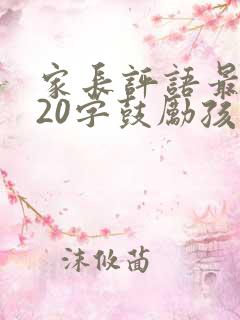 家長評語最
20字鼓勵孩
沫攸茴